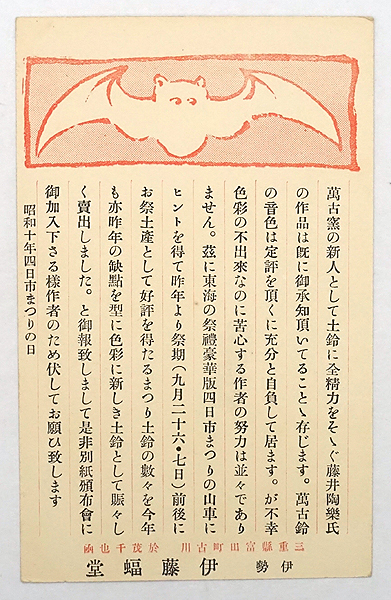 萬古窯の新人として土鈴に全精力をそゝぐ藤井陶樂氏
の作品は既に御承知頂いてることゝ存じます。萬古鈴
の音色は定評を頂くに充分と自負して居ます。が不幸
色彩の不出來なのに苦心する作者の努力は並々であり
ません。茲に東海の祭禮豪華版四日市まつりの山車に
ヒントを得て昨年より祭期(九月二十六・七日)前後に
お祭土產として好評を得たるまつり土鈴の數々を今年
も亦昨年の缺點を型に色彩に新しき土鈴として賑々し
く賣出しました。と御報致しまして是非別紙頒布會に
御加入下さる樣作者のため伏してお願ひ致します
昭和十年四日市まつりの日
三重縣富田町古川 於茂千也凾
伊勢 伊藤蝠堂